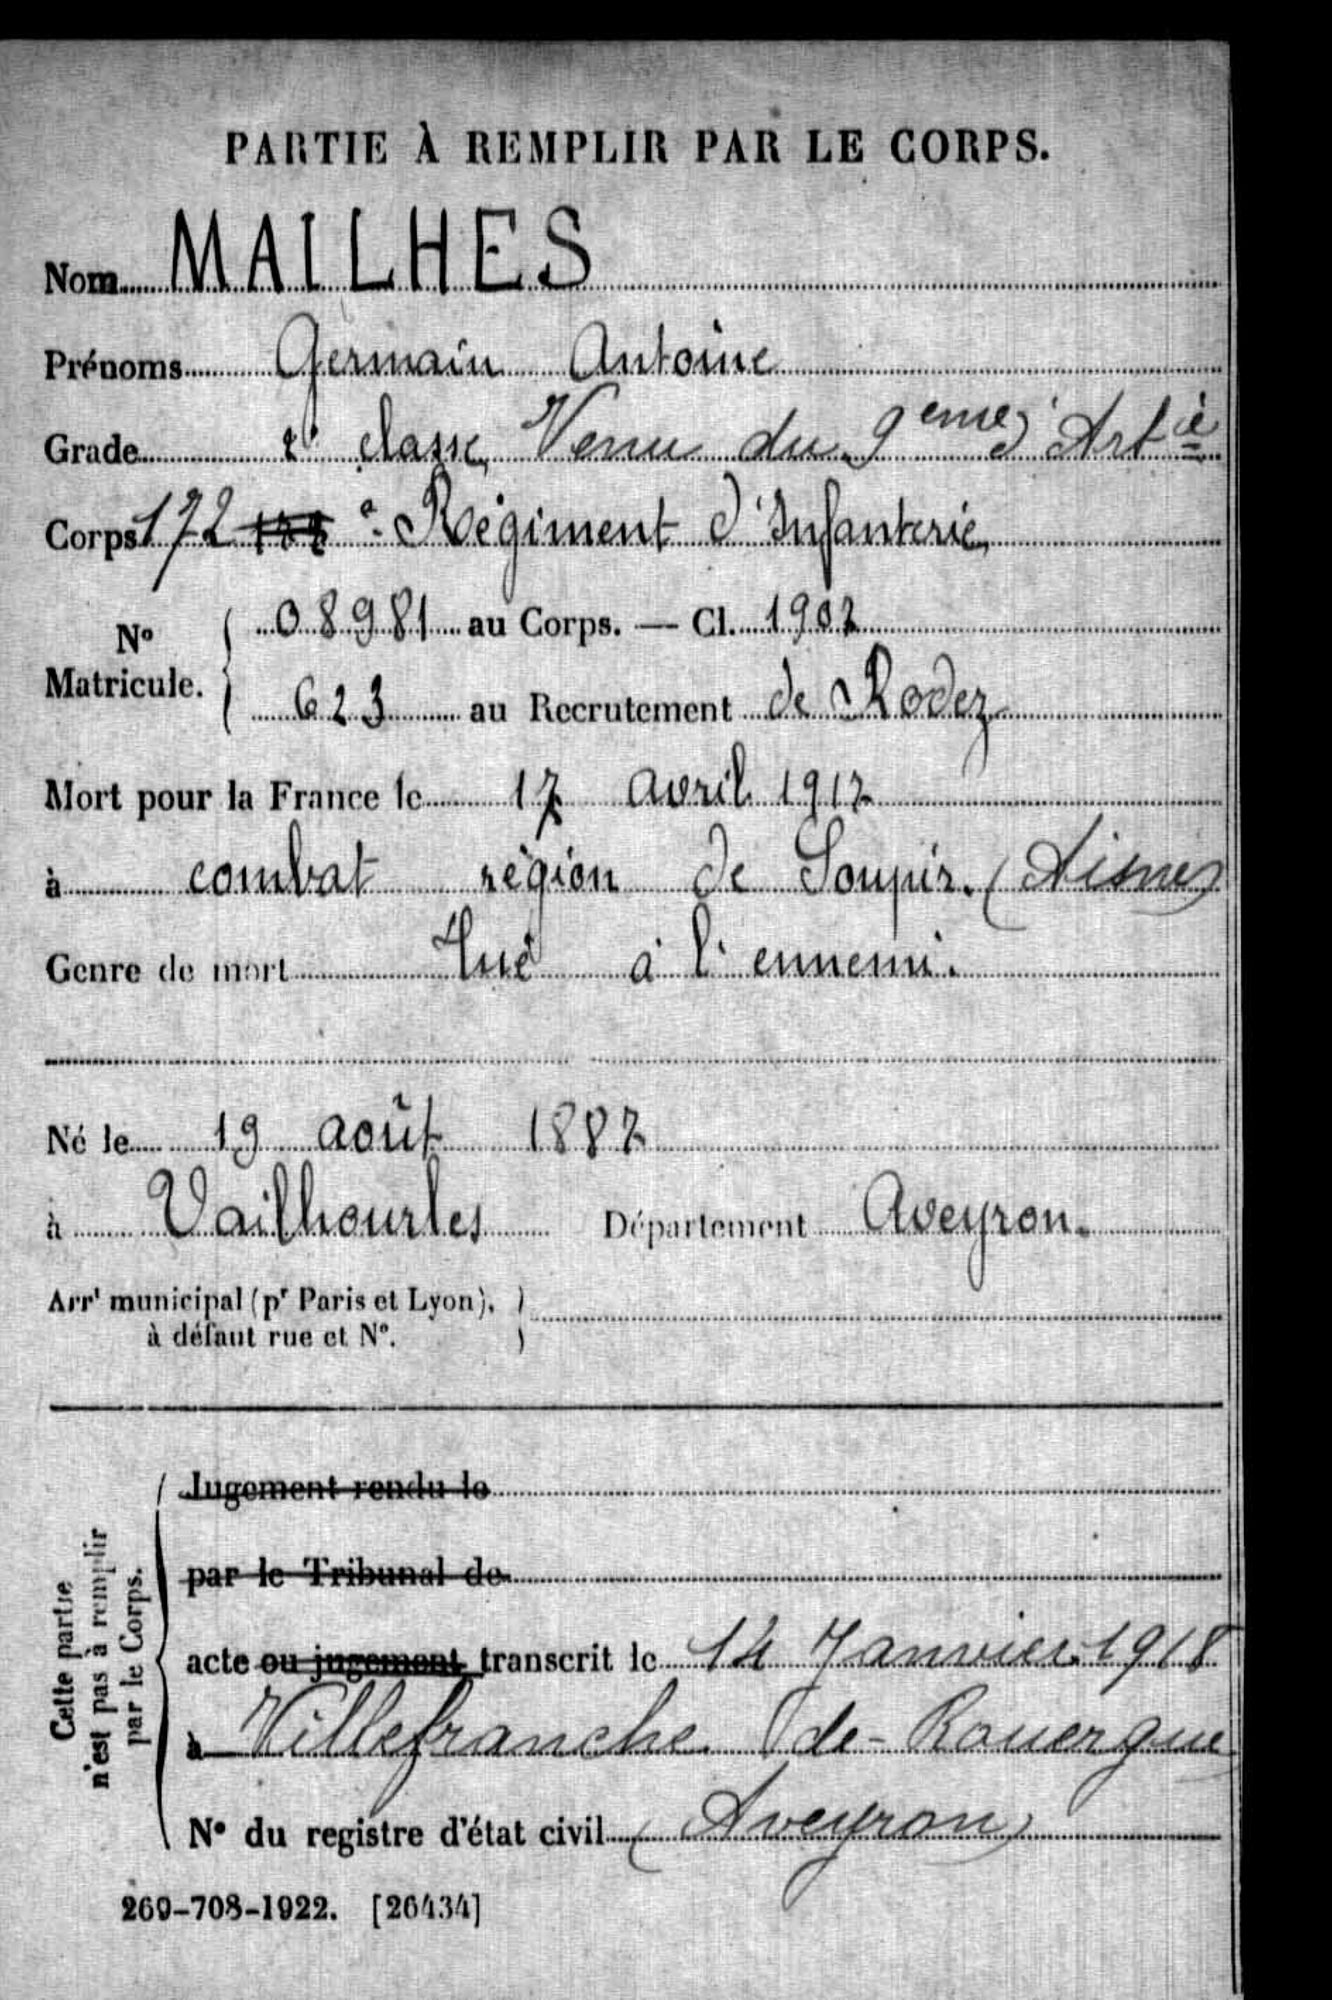 PARTIE À REMPLIR PAR LE CORPS.
Nom MAILHES
Prénoms Germain Antoine
Grade 2e classe, Venu du 9eme d'Artie
Corps 172 e Régiment d'Infanterie
No Matricule. 08981 au Corps. — Cl. 1907
623 au Recrutement de Rodez
Mort pour la France le 17 avril 1917
à combat région de Soupir. (Aisne)
Genre de mort Tué à l'ennemi.
Né le 19 août 1887
à Vailhourles Département Aveyron.
Arrt municipal (pr Paris et Lyon),
à défaut rue et No.
Cette partie
n'est pas à remplir
par le Corps.
Jugement rendu le
par le Tribunal de
acte ou jugement transcrit le 14 Janvier 1918
à Villefranche de-Rouergue
No du registre d'état civil (Aveyron)
269-708-1922. [26434]